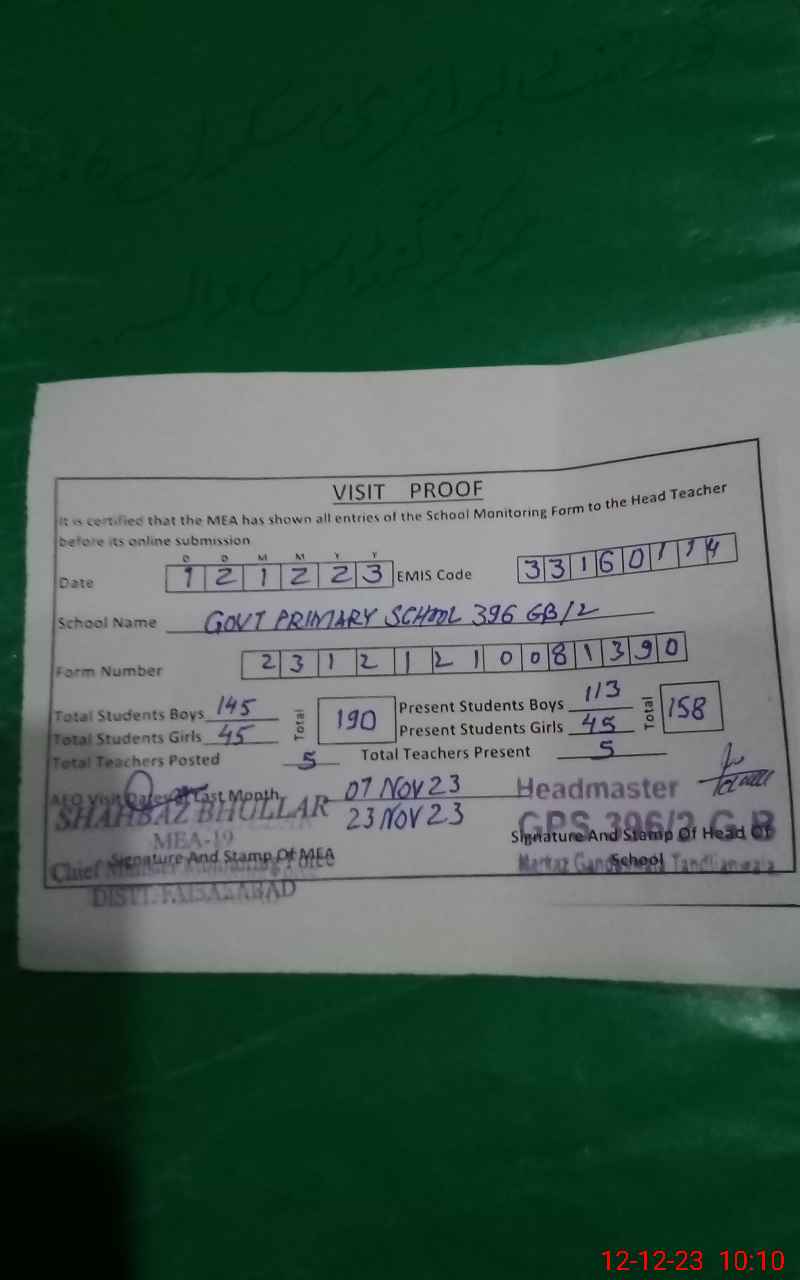 گورنمنٹ پرائمری سکول
مرکز گنڈاسنگھ والہ
VISIT PROOF
It is certified that the MEA has shown all entries of the School Monitoring Form to the Head Teacher
before its online submission
D D M M Y Y
Date 1 2 1 2 2 3 EMIS Code 3 3 1 6 0 1 1 4
School Name GOVT PRIMARY SCHOOL 396 GB/2
Form Number 2 3 1 2 1 2 1 0 0 8 1 3 9 0
Total Students Boys 145 Total 190 Present Students Boys 113 Total 158
Total Students Girls 45 Present Students Girls 45
Total Teachers Posted 5 Total Teachers Present 5
AEO Visit Dates Of Last Month 07 NOV 23
23 NOV 23
SHAHBAZ BHULLAR
MEA-19
Signature And Stamp Of MEA
Chief Minister Monitoring Force
DISTT. FAISALABAD
Headmaster
GPS 396/2 G.B
Signature And Stamp Of Head Of
School
Markaz Tandlianwala
12-12-23 10:10